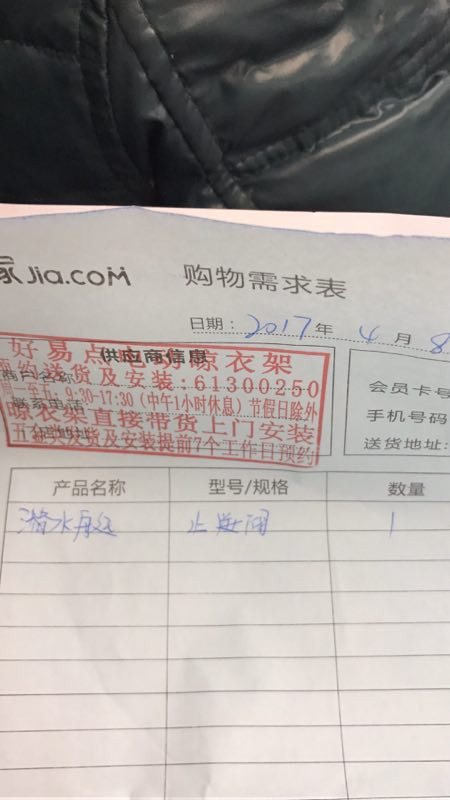 家Jia.com 购物需求表
日期: 2017 年 4 月 8
供应商信息
好易点电动晾衣架
预约送货及安装:61300250
周一至五:9:30-17:30(中午1小时休息)节假日除外
晾衣架直接带货上门安装
五金送货及安装提前7个工作日预约
商户名称
联系电话
会员卡号
手机号码
送货地址:
产品名称 型号/规格 数量
潜水 止逆阀 1